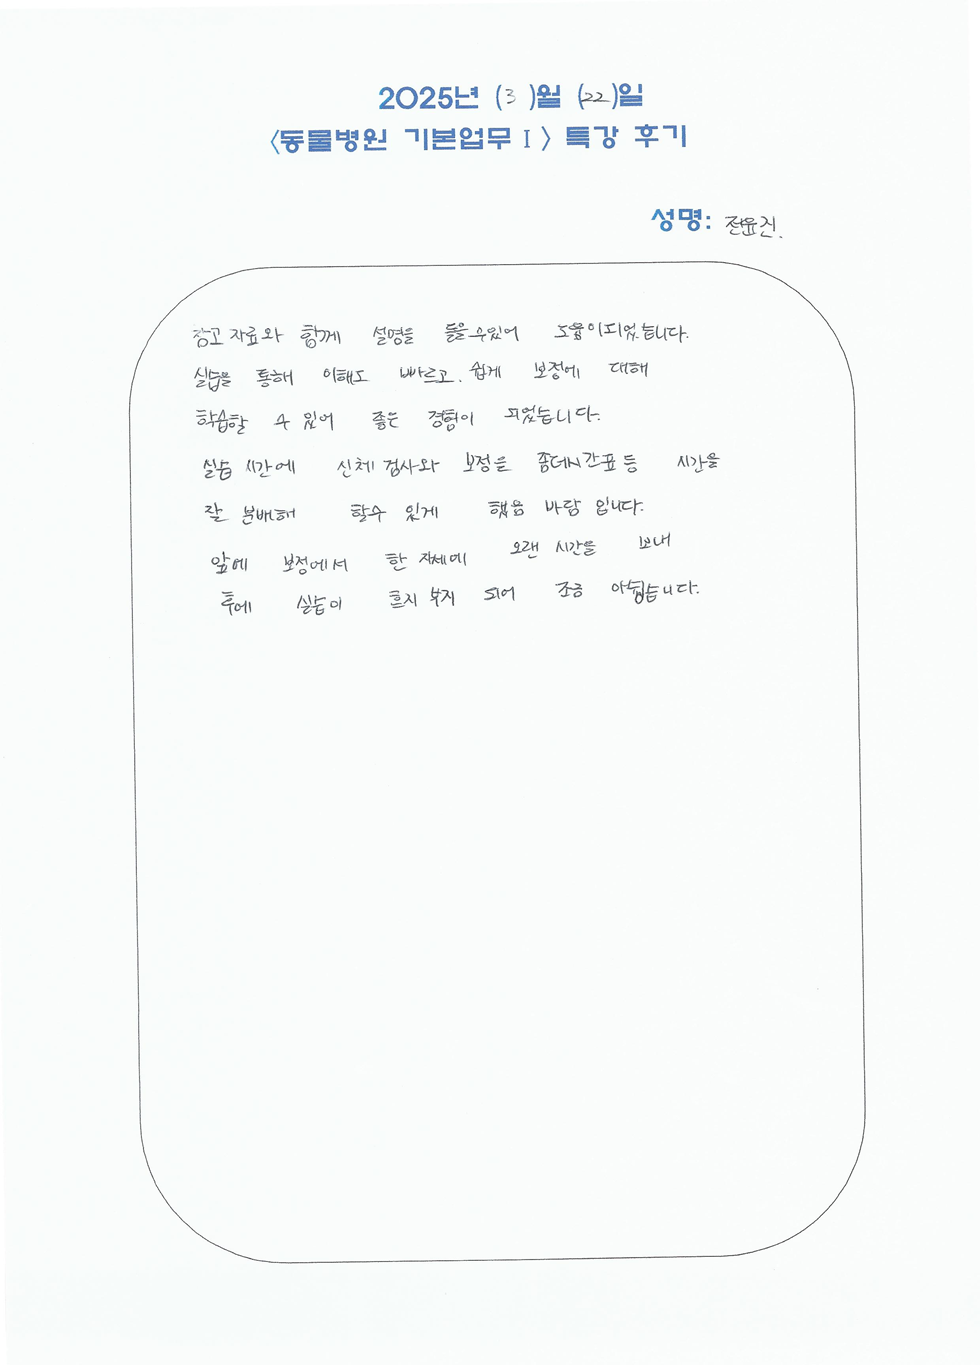 2025년 (3)월 (22)일
<동물병원 기본업무 I> 특강 후기
성명: 전윤진.
참고 자료와 함께 설명을 들을 수있어 도움이되었습니다.
실습을 통해 이해도 빠르고, 쉽게 보정에 대해
학습할 수 있어 좋은 경험이 되었습니다.
실습 시간에 신체 검사와 보정을 좀더 시간표 등 시간을
잘 분배해 할수 있게 했음 바람 입니다.
앞에 보정에서 한 자세에 오랜 시간을 보내
후에 실습이 흐지 부지 되어 조금 아쉽습니다.